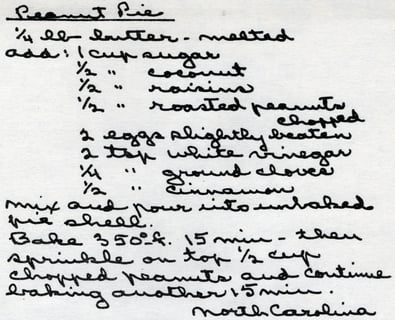 Peanut Pie
1/4 lb butter - melted
add: 1 cup sugar
1/2 " coconut
1/2 " raisins
1/2 " roasted peanuts
chopped
2 eggs slightly beaten
2 tsp white vinegar
1/4 " ground cloves
1/2 " cinnamon
mix and pour into unbaked
pie shell.
Bake 350° f. 15 min - then
sprinkle on top 1/2 cup
chopped peanuts and continue
baking another 15 min.
North Carolina